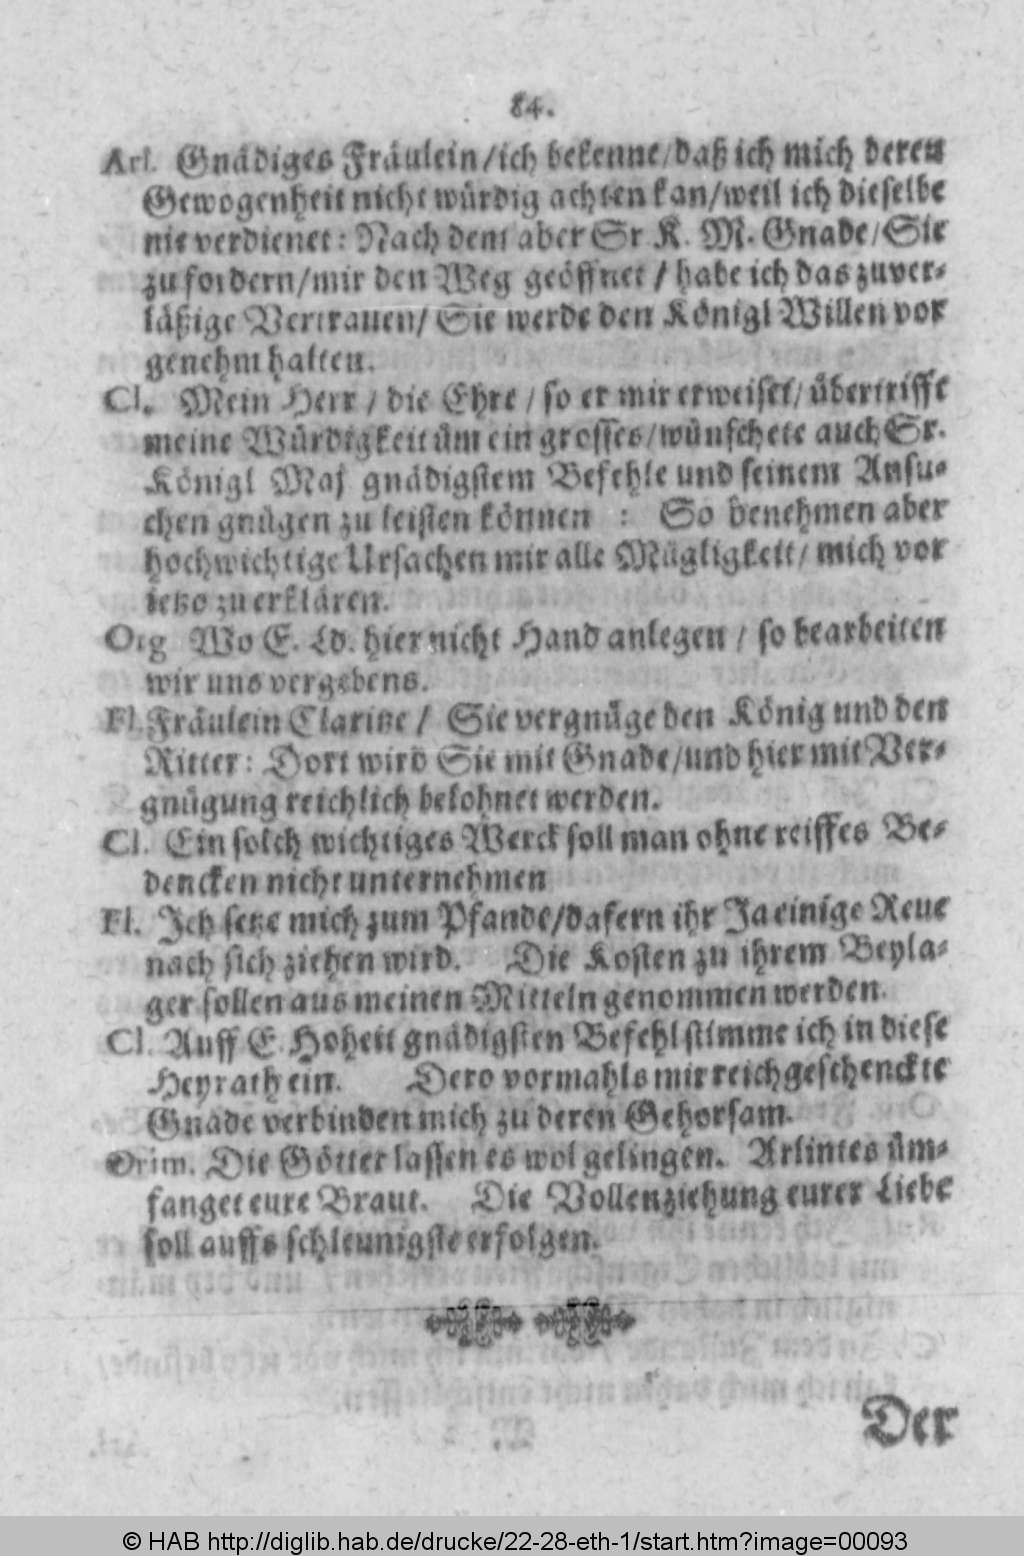 84.
Arl. Gnädiges Fräulein/ich bekenne/daß ich mich deren
Gewogenheit nicht würdig achten kan/weil ich dieselbe
nie verdienet: Nach dem aber Sr K. M. Gnade/Sie
zu fordern/mir den Weg geöffnet / habe ich das zuver-
läßige Vertrauen/ Sie werde den Königl Willen vor
genehm halten.
Cl. Mein Herr / die Ehre / so er mir erweiset/ übertrifft
meine Würdigkeit üm ein grosses/wünschete auch Sr.
Königl Maj gnädigstem Befehle und seinem Ansu-
chen gnügen zu leisten können : So benehmen aber
hochwichtige Ursachen mir alle Mügligkeit/ mich vor
ietzo zu erklären.
Org Wo E. Ld. hier nicht Hand anlegen / so bearbeiten
wir uns vergebens.
Fl. Fräulein Claritze / Sie vergnüge den König und den
Ritter: Dort wird Sie mit Gnade/und hier mit Ver-
gnügung reichlich belohnet werden.
Cl. Ein solch wichtiges Werck soll man ohne reiffes Be-
dencken nicht unternehmen
Fl. Ich setze mich zum Pfande/dafern ihr Ja einige Reue
nach sich ziehen wird. Die Kosten zu ihrem Beyla-
ger sollen aus meinen Mitteln genommen werden.
Cl. Auff E. Hoheit gnädigsten Befehl stimme ich in diese
Heyrath ein. Dero vormahls mir reich geschenckte
Gnade verbinden mich zu deren Gehorsam.
Orim. Die Götter lassen es wol gelingen. Arlintes üm-
fanget eure Braut. Die Vollenziehung eurer Liebe
soll auffs schleunigste erfolgen.
Der
© HAB http://diglib.hab.de/drucke/22-28-eth-1/start.htm?image=00093